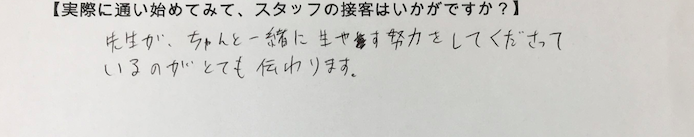 【実際に通い始めてみて、スタッフの接客はいかがですか？】
先生が、ちゃんと一緒に生やす努力をしてくださって
いるのがとても伝わります。